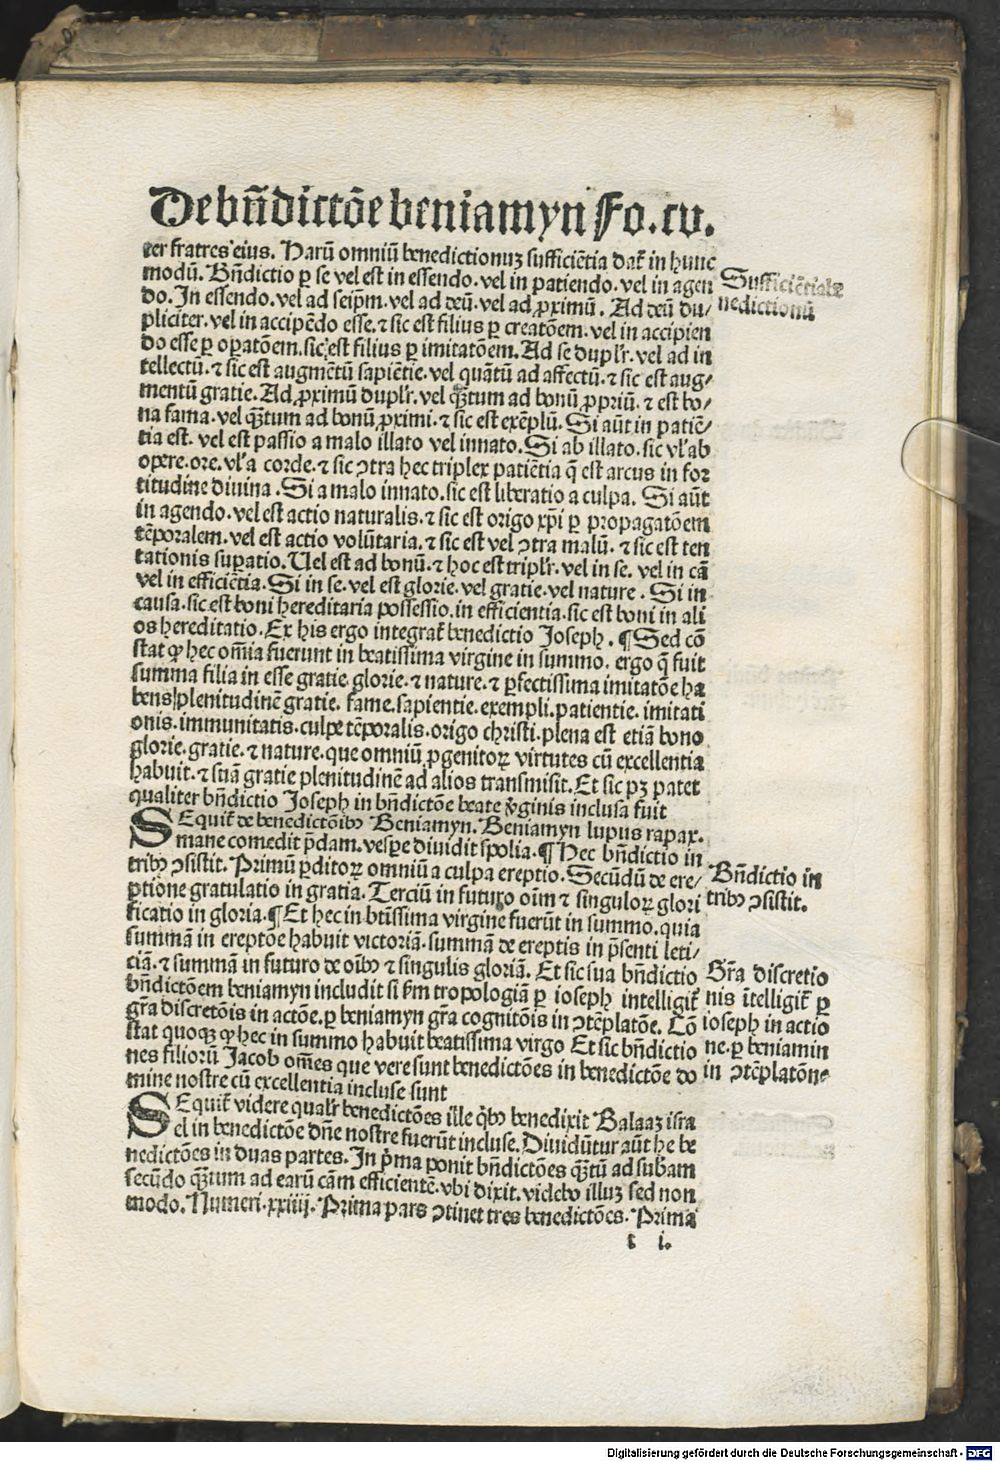 De bn̄dictōe beniamyn Fo. cv.
ter fratres eius. Harū omniū benedictionuꝫ sufficiētia dat᷑ in hunc
modū. Bn̄dictio ꝑ se vel est in essendo. vel in patiendo. vel in agen
do. In essendo. vel ad seip̄m. vel ad deū. vel ad ꝓximū. Ad deū du⸗
pliciter. vel in accipēdo esse. ⁊ sic est filius ꝑ creatōem. vel in accipien
do esse ꝑ oꝑatōem. sic est filius ꝑ imitatōem. Ad se duplr̄. vel ad in
tellectū. ⁊ sic est augmētū sapiētie. vel quātū ad affectū. ⁊ sic est aug⸗
mentū gratie. Ad ꝓximū duplr̄. vel qꝫtum ad bonū ꝓpriū. ⁊ est bo⸗
na fama. vel qꝫtum ad bonū ꝓximi. ⁊ sic est exēplū. Si aūt in patiē⸗
tia est. vel est passio a malo illato vel innato. Si ab illato. sic vl̓ ab
opere. ore. vl̓ a corde. ⁊ sic ꝯtra hec triplex patiētia q̄ est arcus in for
titudine diuina. Si a malo innato. sic est liberatio a culpa. Si aūt
in agendo. vel est actio naturalis. ⁊ sic est origo xp̄i ꝑ propagatōem
tēporalem. vel est actio volūtaria. ⁊ sic est vel ꝯtra malū. ⁊ sic est ten
tationis suꝑatio. Uel est ad bonū. ⁊ hoc est triplr̄. vel in se. vel in cā
vel in efficiētia. Si in se. vel est glorie. vel gratie. vel nature. Si in
causa. sic est boni hereditaria possessio. in efficientia. sic est boni in ali
os hereditatio. Ex his ergo integrat᷑ benedictio Joseph. ¶ Sed cō
stat ꝙ hec om̄ia fuerunt in beatissima virgine in summo. ergo q̄ fuit
summa filia in esse gratie. glorie. ⁊ nature. ⁊ ꝑfectissima imitatōe ha
bens plenitudinē gratie. fame. sapientie. exempli. patientie. imitati
onis. immunitatis. culpe tēporalis. origo christi. plena est etiā bono
glorie. gratie. ⁊ nature. que omniū ꝓgenitoꝝ virtutes cū excellentia
habuit. ⁊ suā gratie plenitudinē ad alios transmisit. Et sic pꝫ patet
qualiter bn̄dictio Joseph in bn̄dictōe beate v̓ginis inclusa fuit
SEquit᷑ de benedictōibꝰ Beniamyn. Beniamyn lupus rapax.
mane comedit p̄dam. vesꝑe diuidit spolia. ¶ Hec bn̄dictio in
tribꝰ ꝯsistit. Primū ꝑditoꝝ omniū a culpa ereptio. Secūdū de ere⸗
ptione gratulatio in gratia. Terciū in futuro oīm ⁊ singuloꝝ glori
ficatio in gloria. ¶ Et hec in btīssima virgine fuerūt in summo. quia
summā in ereptōe habuit victoriā. summā de ereptis in p̄senti leti⸗
ciā. ⁊ summā in futuro de oībꝰ ⁊ singulis gloriā. Et sic sua bn̄dictio
bn̄dictōem beniamyn includit si ẜm tropologiā ꝑ ioseph intelligit᷑
gr̄a discretōis in actōe. ꝑ beniamyn gr̄a cognitōis in ꝯtēplatōe. Cō
stat quoqꝫ ꝙ hec in summo habuit beatissima virgo Et sic bn̄dictio
nes filiorū Jacob om̄es que vere sunt benedictōes in benedictōe do
mine nostre cū excellentia incluse sunt
SEquit᷑ videre qualr̄ benedictōes ille q̄bꝰ benedixit Balaaꝫ isra
el in benedictōe dn̄e nostre fuerūt incluse. Diuidūtur aūt he be
nedictōes in duas partes. In p̄ma ponit bn̄dictōes qꝫtū ad sub̄am
secūdo qꝫtum ad earū cām efficientē. vbi dixit. videbo illuꝫ sed non
modo. Numeri. xxiiii. Prima pars ꝯtinet tres benedictōes. Prima
Sufficiētia be
nedictionū
Bn̄dictio in
tribꝰ ꝯsistit.
Gr̄a discretio
nis ītelligit᷑ ꝑ
ioseph in actio
ne. ꝑ beniamin
in ꝯtēplatōne
Digitalisierung gefördert durch die Deutsche Forschungsgemeinschaft - DFG